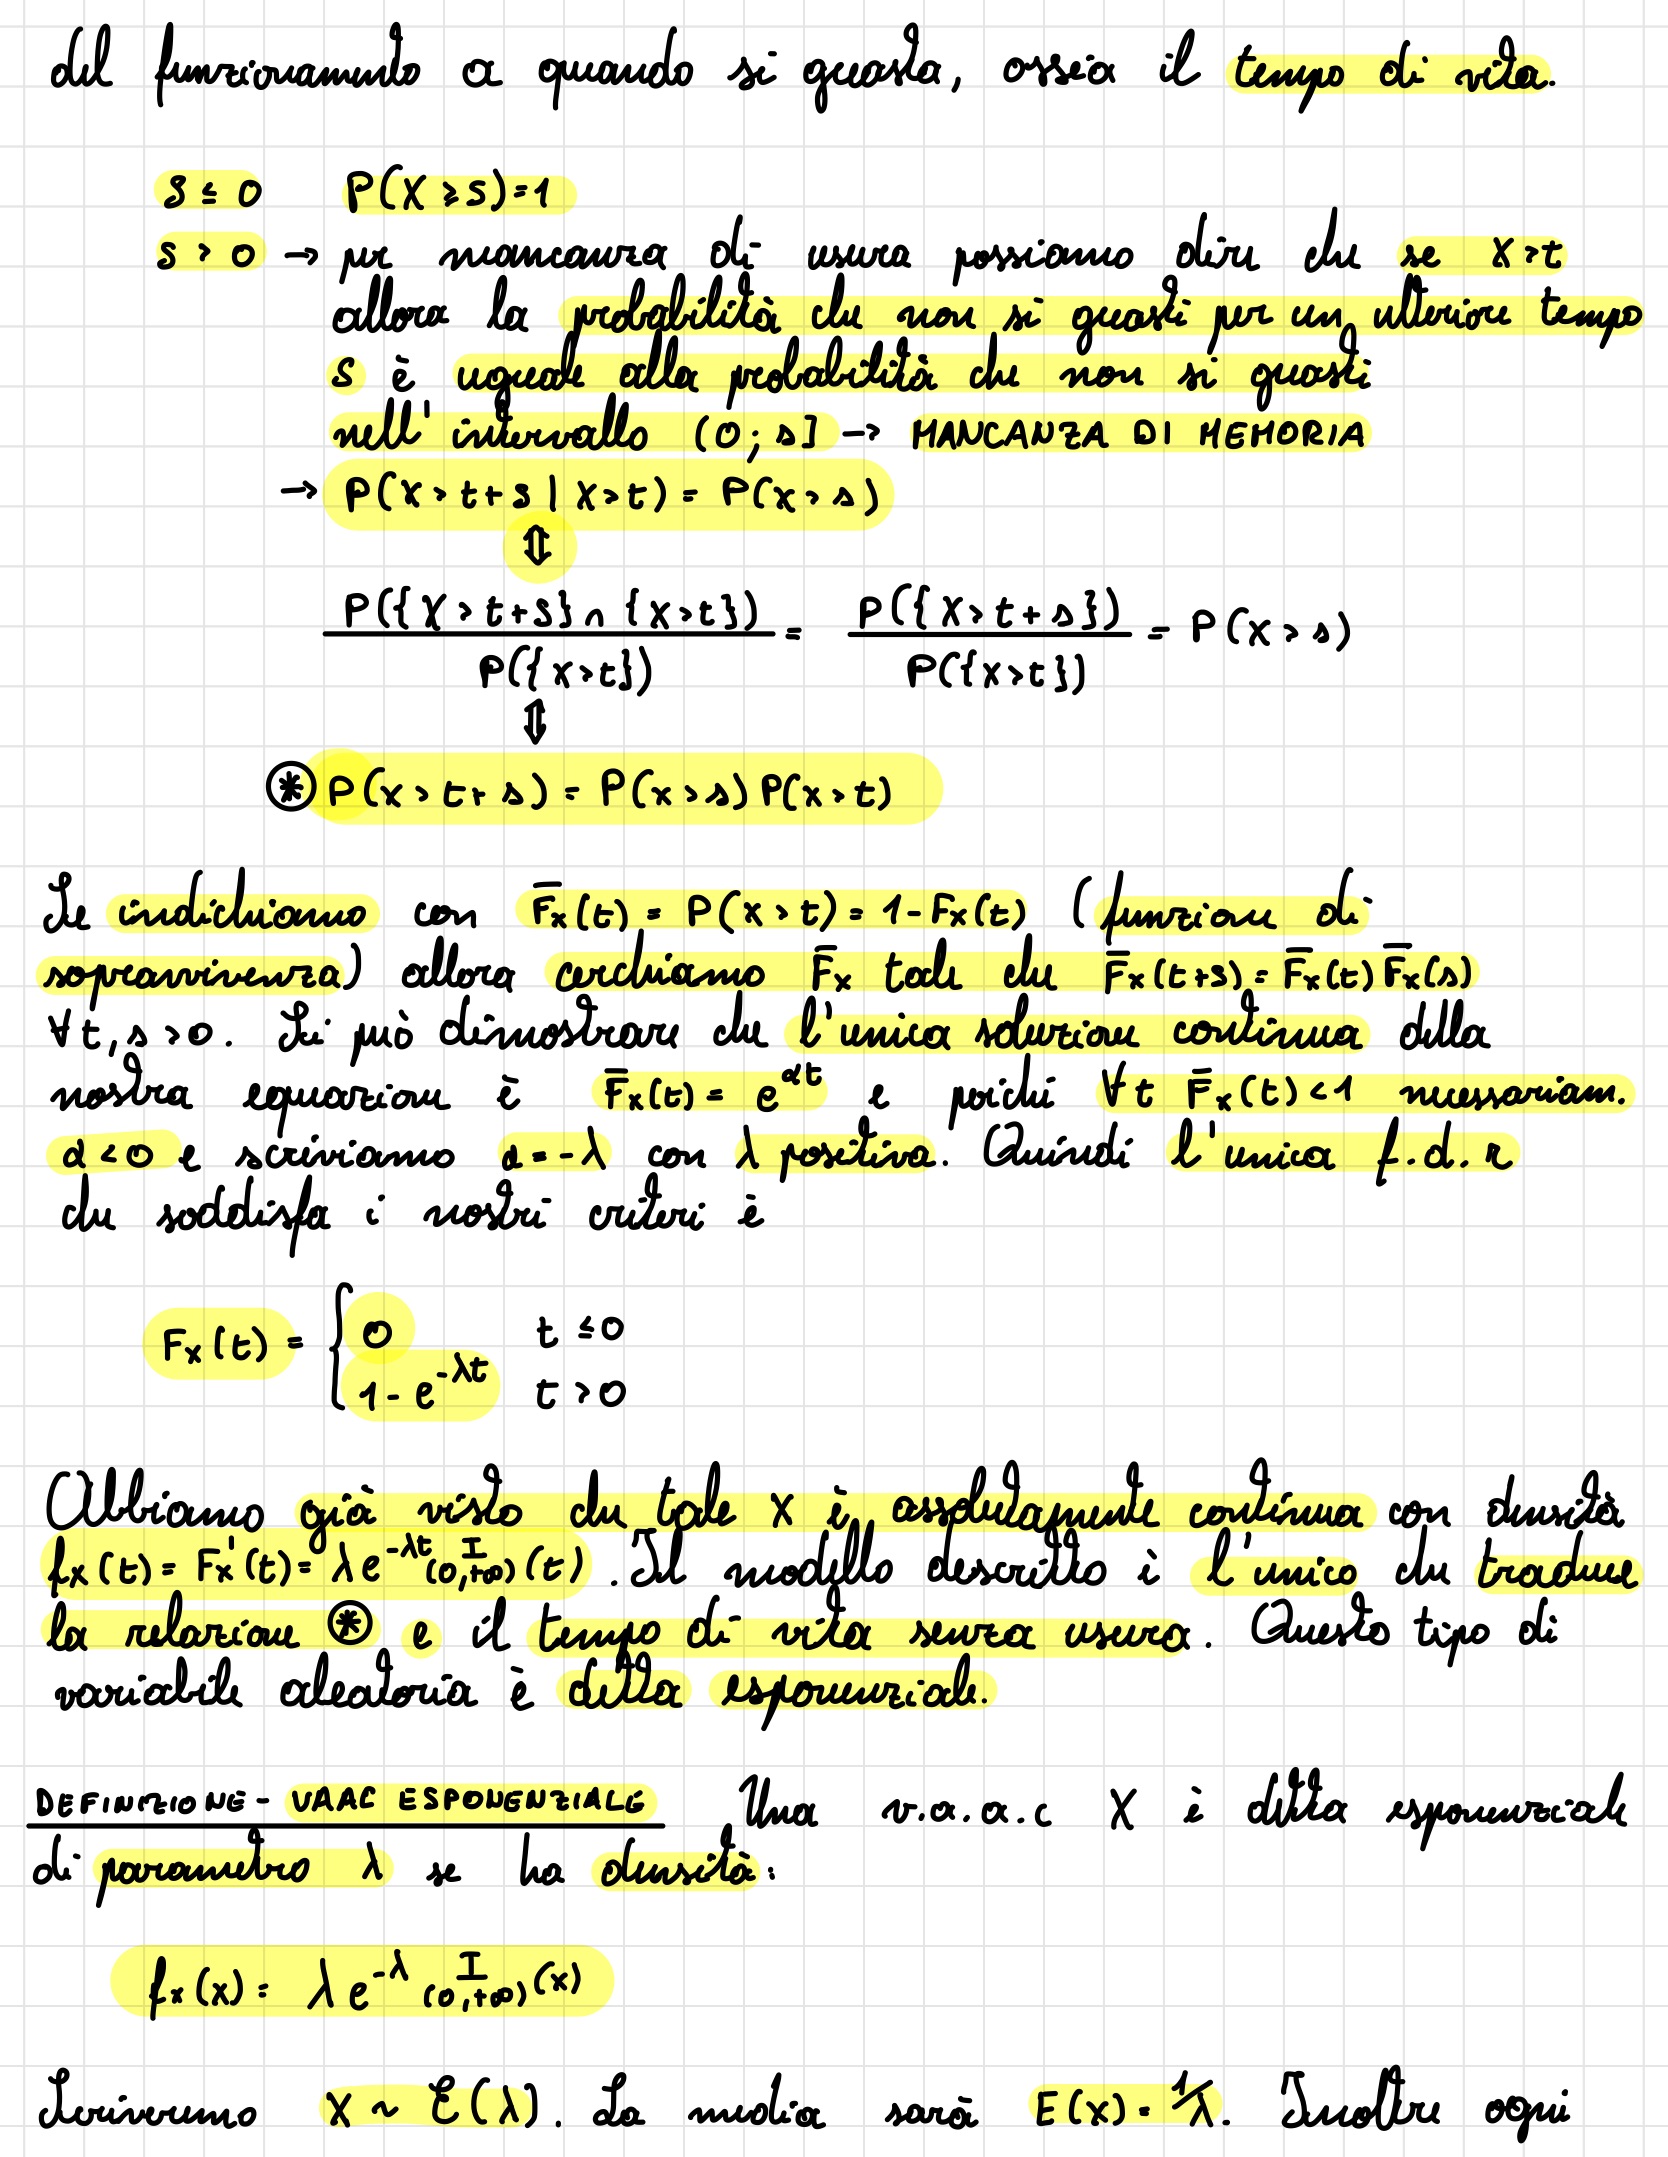 del funzionamento a quando si guasta, ossia il tempo di vita.
S ≤ 0 P(X ≥ S) = 1
S > 0 → per mancanza di usura possiamo dire che se X > t
allora la probabilità che non si guasti per un ulteriore tempo
S è uguale alla probabilità che non si guasti
nell'intervallo (0; s] → MANCANZA DI MEMORIA
→ P(X > t+S | X > t) = P(X > s)
⇕
P({X > t+S} ∩ {X > t}) / P({X > t}) = P({X > t+s}) / P({X > t}) = P(X > s)
⇕
⊛ P(X > t+s) = P(X > s) P(X > t)
Se indichiamo con F̅x(t) = P(X > t) = 1 - Fx(t) (funzione di
sopravvivenza) allora cerchiamo F̅x tale che F̅x(t+s) = F̅x(t) F̅x(s)
∀ t, s > 0. Si può dimostrare che l'unica soluzione continua della
nostra equazione è F̅x(t) = e^αt e poiché ∀ t F̅x(t) < 1 necessariam.
α < 0 e scriviamo α = -λ con λ positiva. Quindi l'unica f.d.r
che soddisfa i nostri criteri è
Fx(t) = { 0 t ≤ 0
1 - e^-λt t > 0
Abbiamo già visto che tale X è assolutamente continua con densità
fx(t) = Fx'(t) = λe^-λt I(0,+∞)(t). Il modello descritto è l'unico che traduce
la relazione ⊛ e il tempo di vita senza usura. Questo tipo di
variabile aleatoria è detta esponenziale.
DEFINIZIONE - VAAC ESPONENZIALE Una v.a.a.c X è detta esponenziale
di parametro λ se ha densità:
fx(x) = λ e^-λ I(0,+∞)(x)
Scriveremo X ~ E(λ). La media sarà E(X) = 1/λ. Inoltre ogni